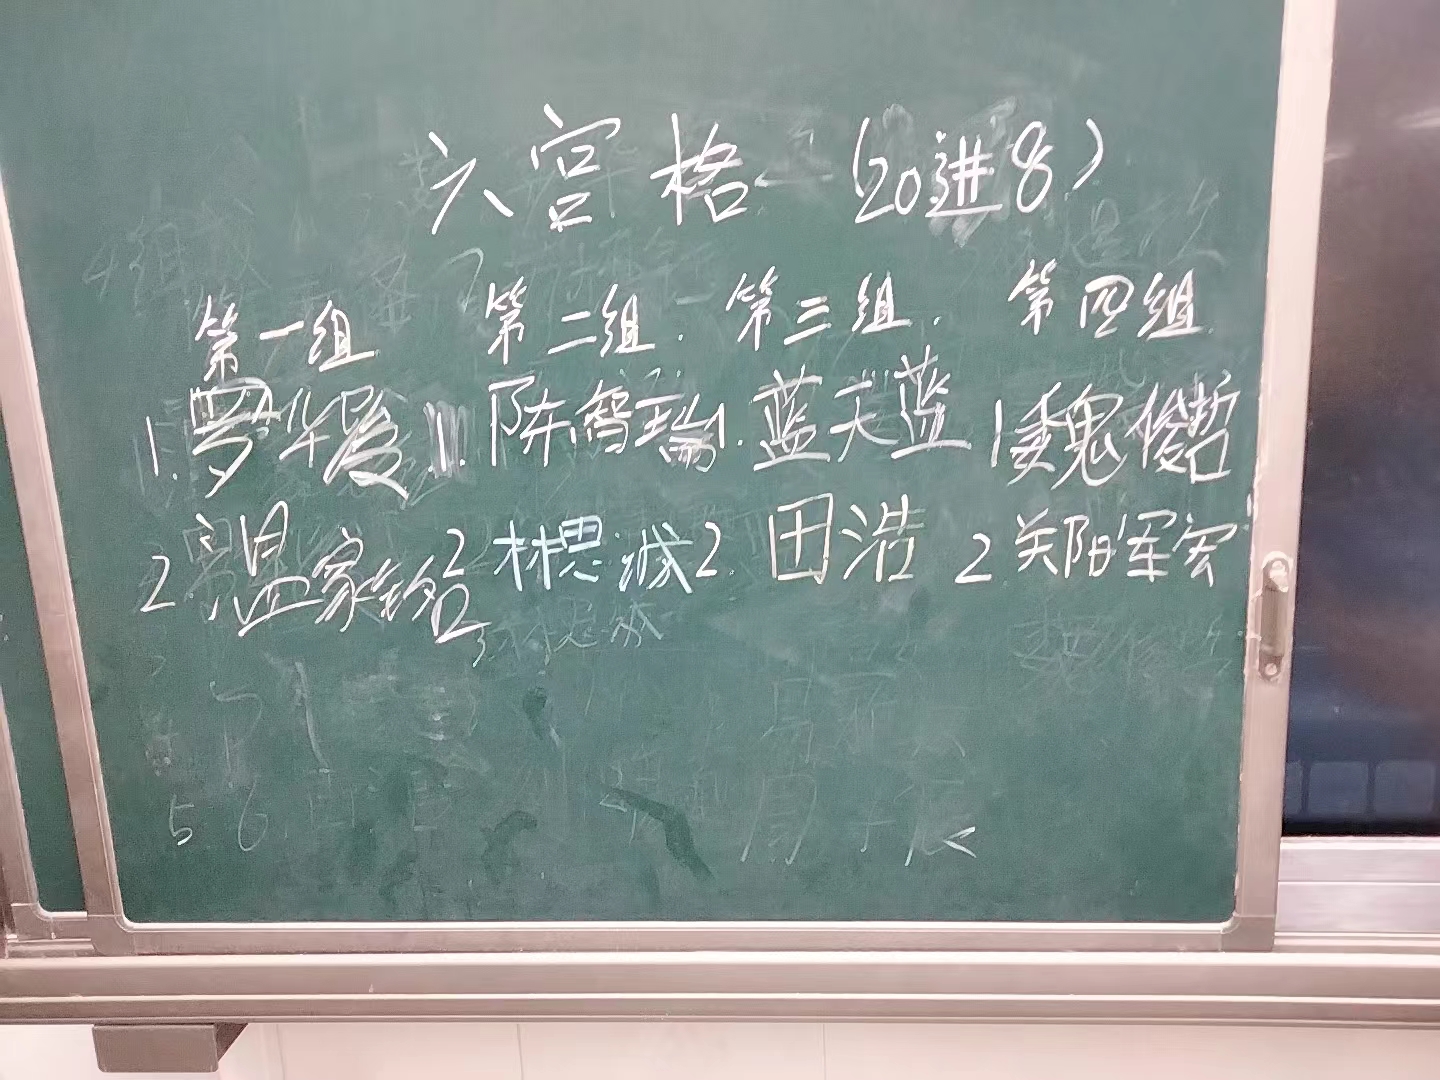 六宫格 (20进8)
第一组 第二组. 第三组. 第四组
1. 罗华骏 1. 陈智瑞 1. 蓝天蓝 1 魏俊哲
2. 温家铭 2 林思诚 2. 田浩 2 郑军宏
5 6